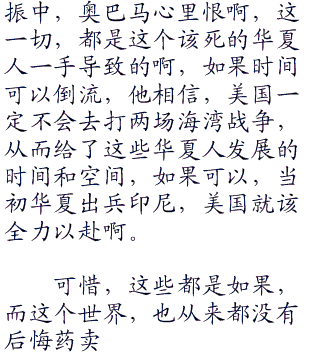 振中，奥巴马心里恨啊，这
一切，都是这个该死的华夏
人一手导致的啊，如果时间
可以倒流，他相信，美国一
定不会去打两场海湾战争，
从而给了这些华夏人发展的
时间和空间，如果可以，当
初华夏出兵印尼，美国就该
全力以赴啊。
可惜，这些都是如果，
而这个世界，也从来都没有
后悔药卖